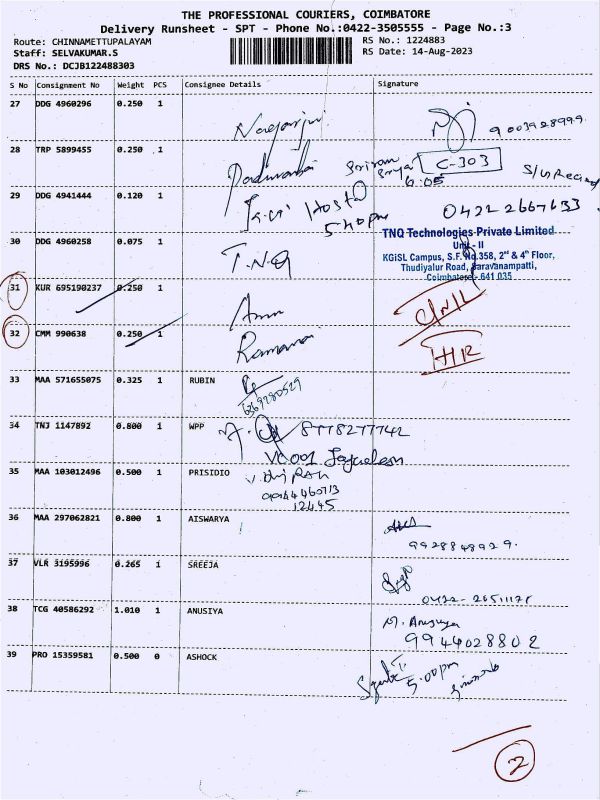 THE PROFESSIONAL COURIERS, COIMBATORE
Delivery Runsheet - SPT - Phone No.:0422-3505555 - Page No.:3
Route: CHINNAMETTUPALAYAM RS No.: 1224883
Staff: SELVAKUMAR.S RS Date: 14-Aug-2023
DRS No.: DCJB122488303
S No Consignment No Weight PCS Consignee Details Signature
27 DDG 4960296 0.250 1
Nagarju 9003928999
28 TRP 5899455 0.250 1
Sriram C-303
6.05
29 DDG 4941444 0.120 1
Hostel 0422 2667633
5.40pm
30 DDG 4960258 0.075 1
T.N.Q
TNQ Technologies Private Limited
Unit - II
KGiSL Campus, S.F. No.358, 2nd & 4th Floor,
Thudiyalur Road, Saravanampatti,
Coimbatore - 641 035
31 KUR 695190237 0.250 1
32 CMM 990638 0.250 1
33 MAA 571655075 0.325 1 RUBIN
34 TNJ 1147892 0.800 1 WPP
8778277742
35 MAA 103012496 0.500 1 PRISIDIO
12445
36 MAA 297062821 0.800 1 AISWARYA
9928848929.
37 VLR 3195996 0.265 1 SREEJA
38 TCG 40586292 1.010 1 ANUSIYA
M. Anusuya
9944028802
39 PRO 15359581 0.500 0 ASHOCK
5.00pm
2